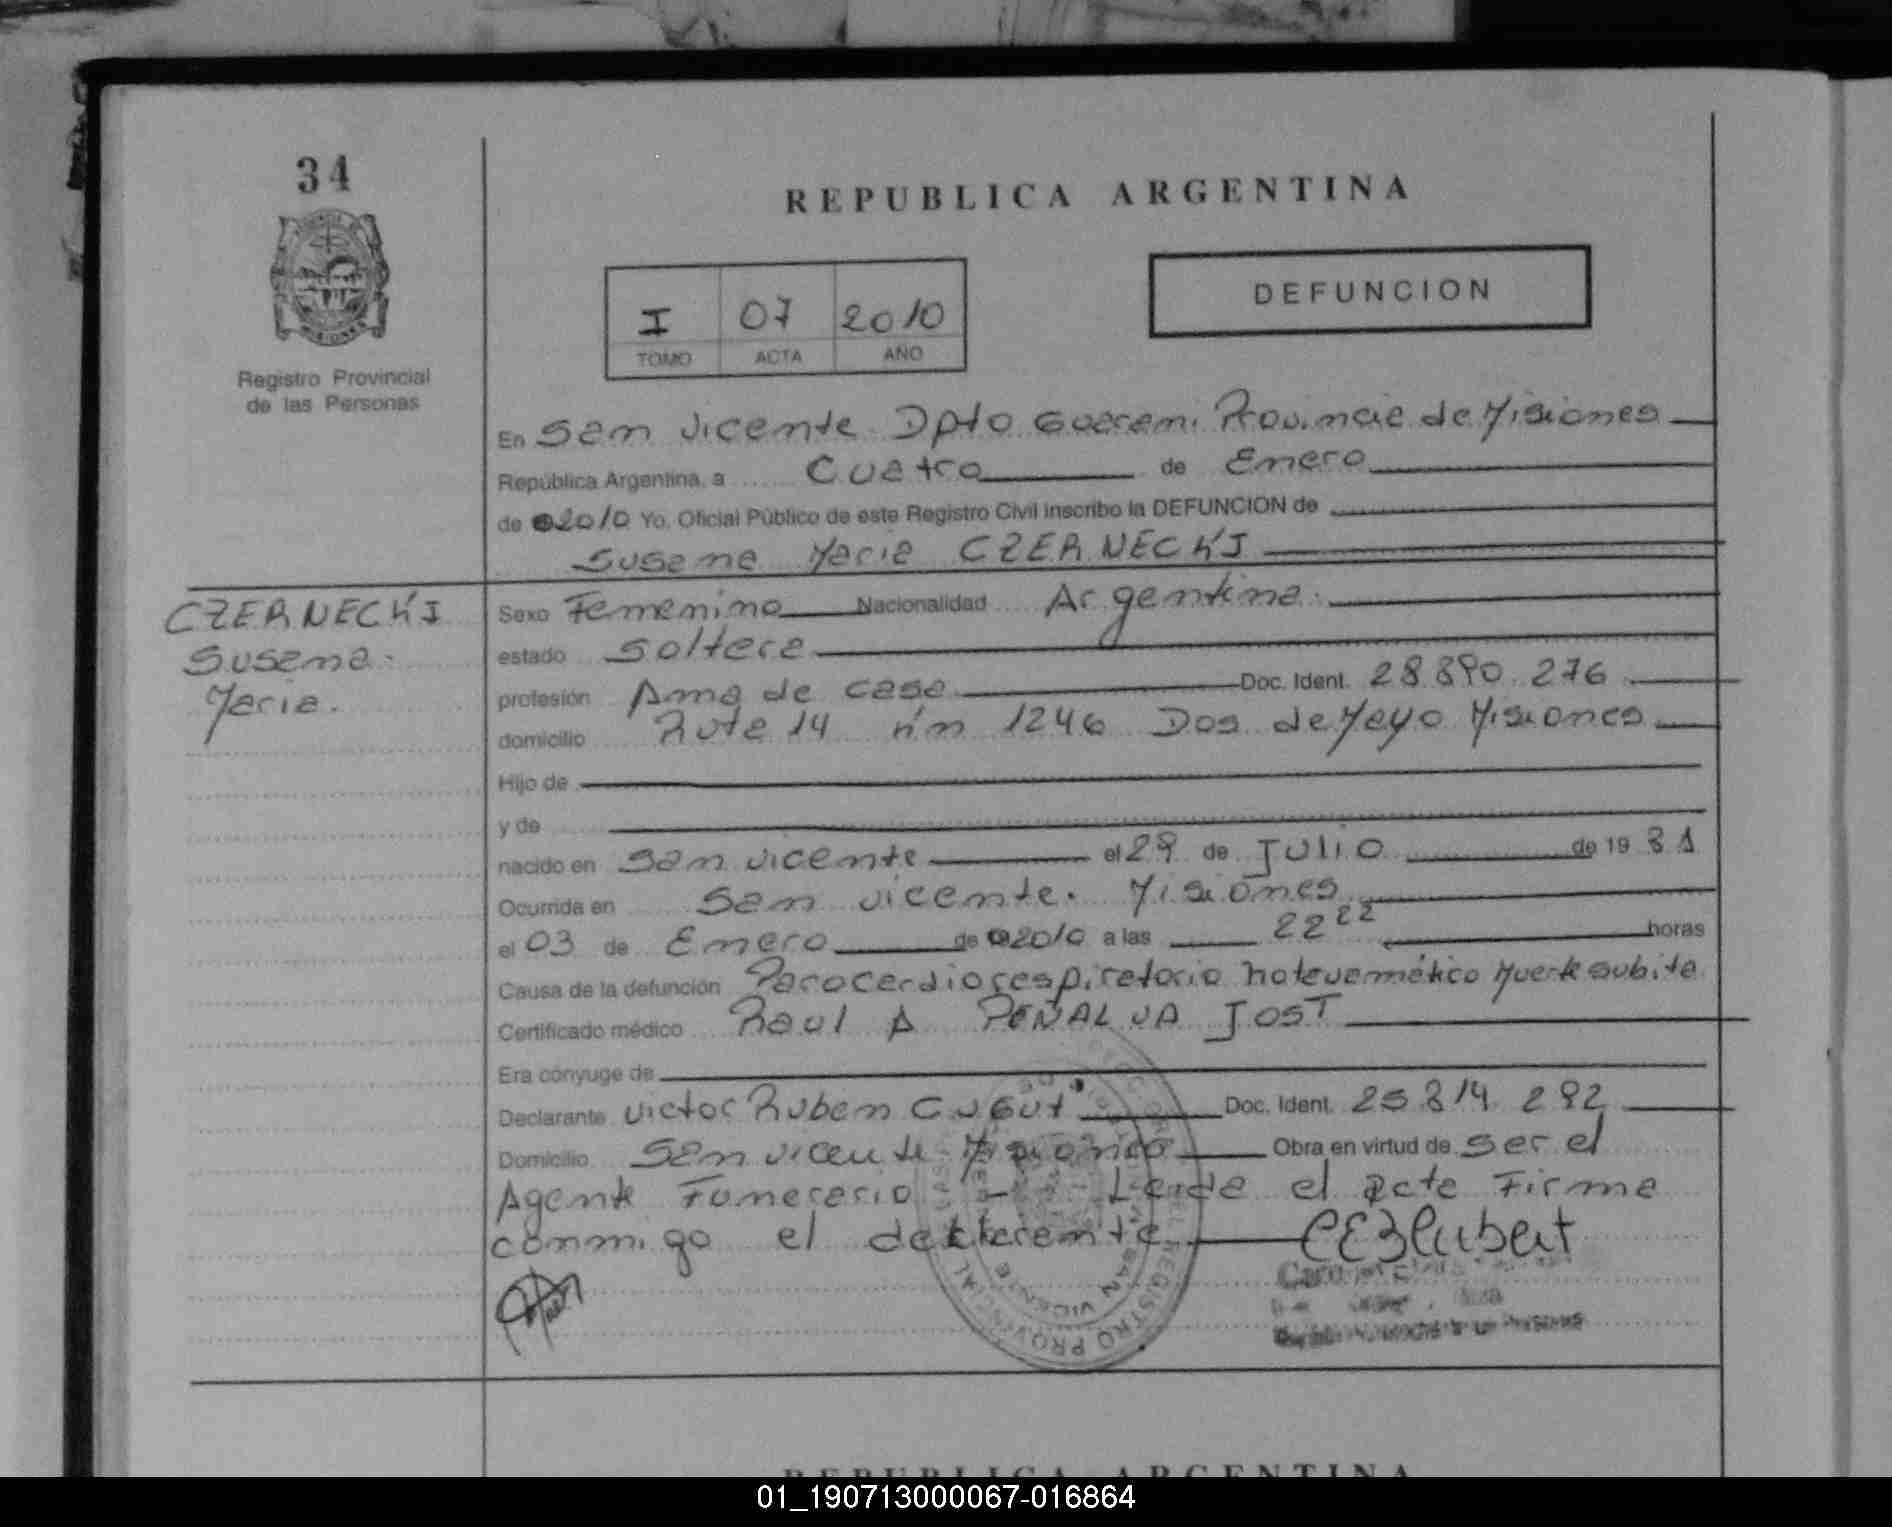 34
REPUBLICA ARGENTINA
DEFUNCION
I 07 2010
TOMO ACTA AÑO
Registro Provincial
de las Personas
En San Vicente Dpto Guarani Provincia de Misiones
República Argentina, a Cuatro de Enero
de 2010 Yo, Oficial Público de este Registro Civil inscribo la DEFUNCION de
Susana Maria CZERNECKI
CZERNECKI
Susana
Maria.
Sexo Femenino Nacionalidad Argentina.
estado Soltera
profesión Ama de casa Doc. Ident. 28.890.276
domicilio Ruta 14 Km 1246 Dos de Mayo Misiones
Hijo de
y de
nacido en San Vicente el 29 de Julio de 19 81
Ocurrida en San Vicente. Misiones
el 03 de Enero de 2010 a las 22 22 horas
Causa de la defunción Parocardiorespiratorio notraumático Muerte subita
Certificado médico Raul A PEÑALVA JOST
Era cónyuge de
Declarante Victor Ruben Cugut Doc. Ident. 25.814.292
Domicilio San Vicente Misiones Obra en virtud de ser el
Agente Funerario - Leida el acta Firma
conmigo el declarante
REGISTRO PROVINCIAL
SAN VICENTE
REPUBLICA ARGENTINA
01_190713000067-016864